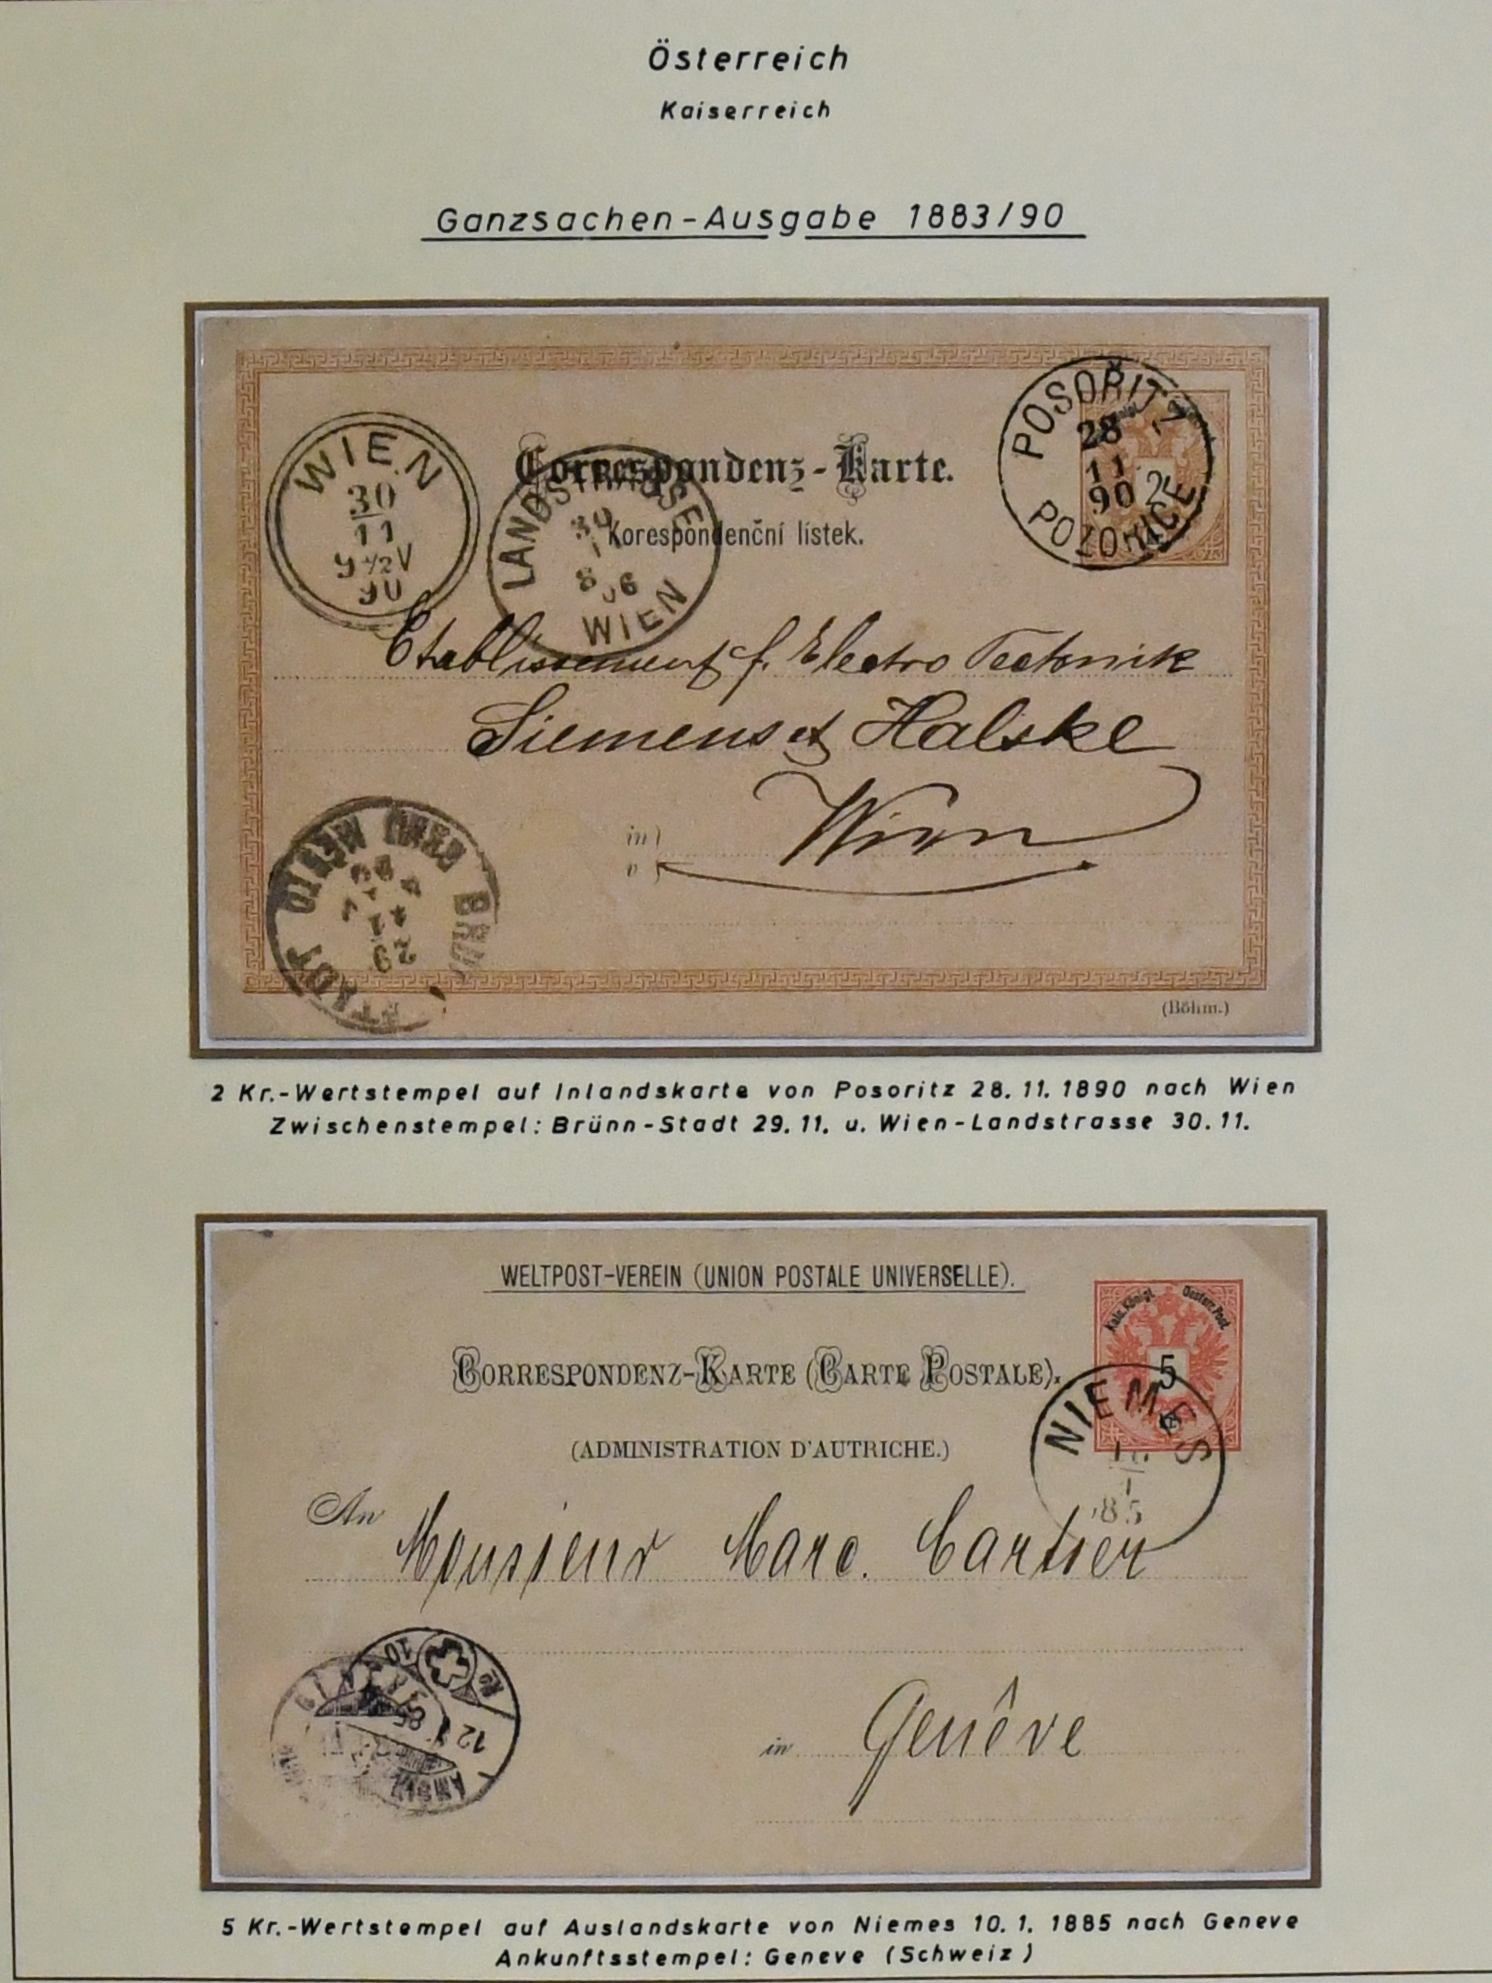 Österreich
Kaiserreich
Ganzsachen-Ausgabe 1883/90
POSOŘITZ
28
11
90
POZOŘICE
2
WIEN
30
11
9 1/2 V
90
Correspondenz-Karte.
LANDSTRASSE
30
8
WIEN
Korespondenční lístek.
Etablissement f. Electro Technik
Siemens et Halske
in
Wien
v
BRÜNN
STADT
29
11
90
(Böhm.)
2 Kr.-Wertstempel auf Inlandskarte von Posoritz 28.11.1890 nach Wien
Zwischenstempel: Brünn-Stadt 29.11. u. Wien-Landstrasse 30.11.
WELTPOST-VEREIN (UNION POSTALE UNIVERSELLE).
Kais. Königl. Oesterr. Post.
5
CORRESPONDENZ-KARTE (CARTE POSTALE).
NIEMES
10
1
85
(ADMINISTRATION D'AUTRICHE.)
An Monsieur Marc. Cartier
10
12
85
in Genêve
5 Kr.-Wertstempel auf Auslandskarte von Niemes 10.1.1885 nach Geneve
Ankunftsstempel: Geneve (Schweiz)